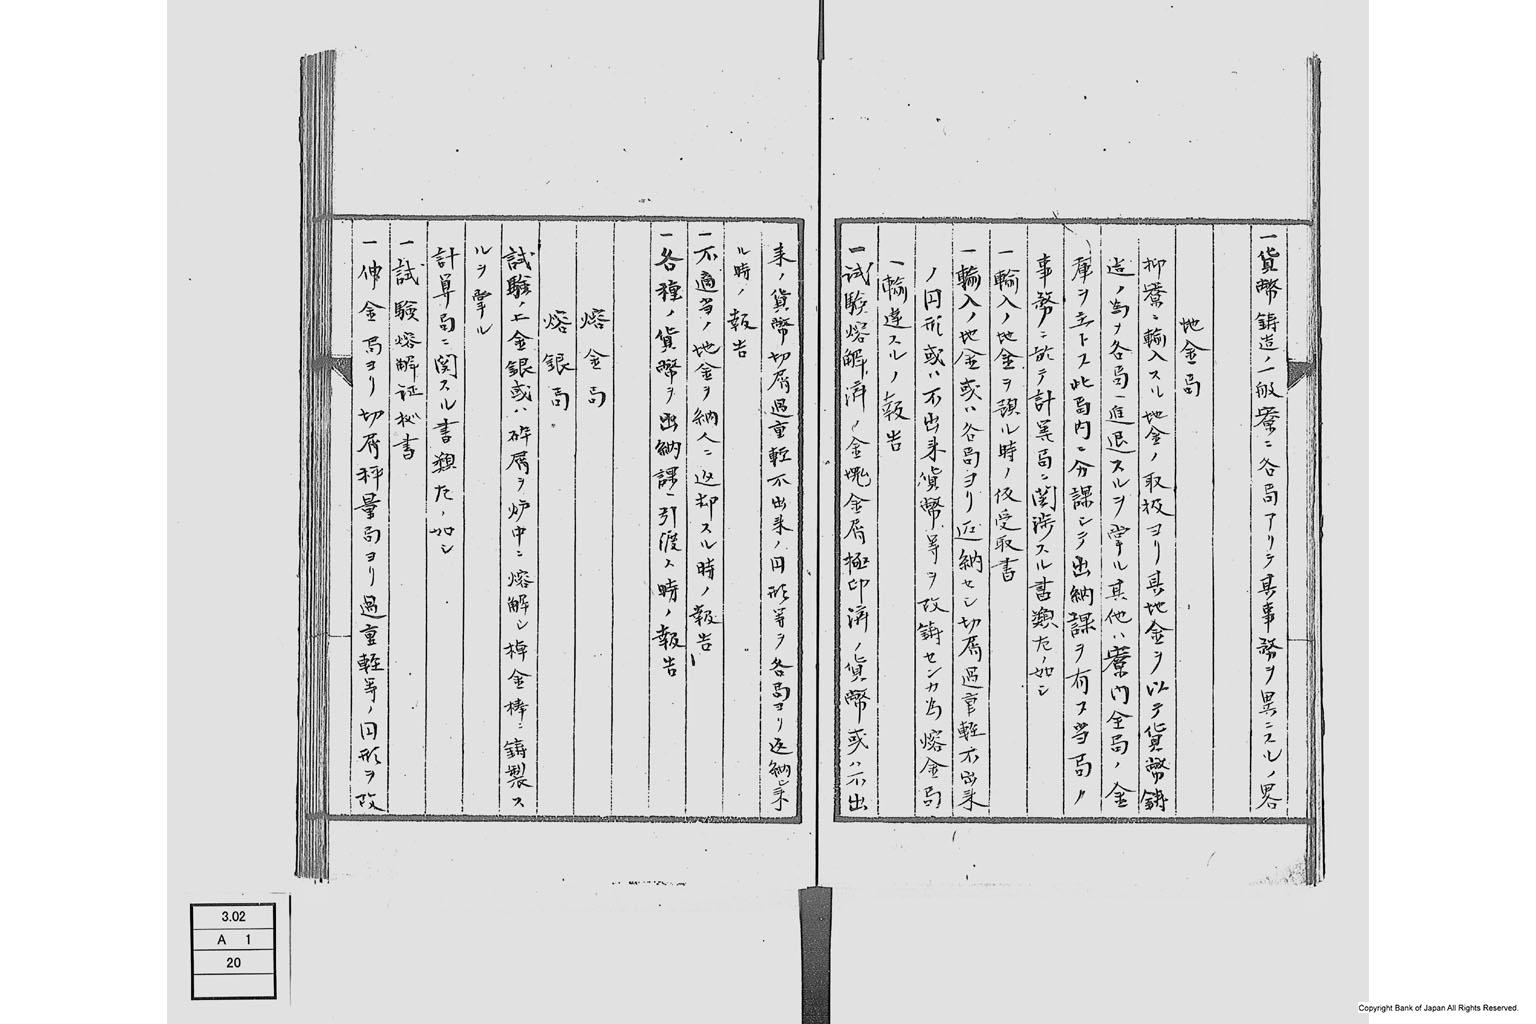 一貨幣鋳造ノ一般寮ニ各局アリテ其事務ヲ異ニスルノ畧
地金局
抑寮ニ輸入スル地金ノ取扱ヨリ其地金ヲ以テ貨幣鋳
造ノ為ナ各局ノ進退スルヲ掌ル其他ハ寮内全局ノ金
庫ヲ主トス此局内ニ分課シテ出納課ヲ有ス当局ノ
事務ニ於テ計算局ニ関渉スル書類左ノ如シ
一輸入ノ地金ヲ預ル時ノ仮受取書
一輸入ノ地金或ハ各局ヨリ返納セシ切屑過重軽不出来
ノ円形或ハ不出来貨幣等ヲ改鋳センカ為熔金局
一輸遣スルノ報告
一試験熔解済ノ金塊金屑極印済ノ貨幣或ハ不出
来ノ貨幣切屑過重軽不出来ノ円形等ヲ各局ヨリ返納シ来
ル時ノ報告
一不適当ノ地金ヲ納人ニ返却スル時ノ報告
一各種ノ貨幣ヲ出納課ヘ引渡ス時ノ報告
熔金局
熔銀局
試験ノ上金銀或ハ砕屑ヲ炉中ニ熔解シ棹金棒ニ鋳製ス
ルヲ掌ル
計算局ニ関スル書類左ノ如シ
一試験熔解証秘書
一伸金局ヨリ切屑秤量局ヨリ過重軽等ノ円形ヲ改
3.02
A 1
20
Copyright Bank of Japan All Rights Reserved.